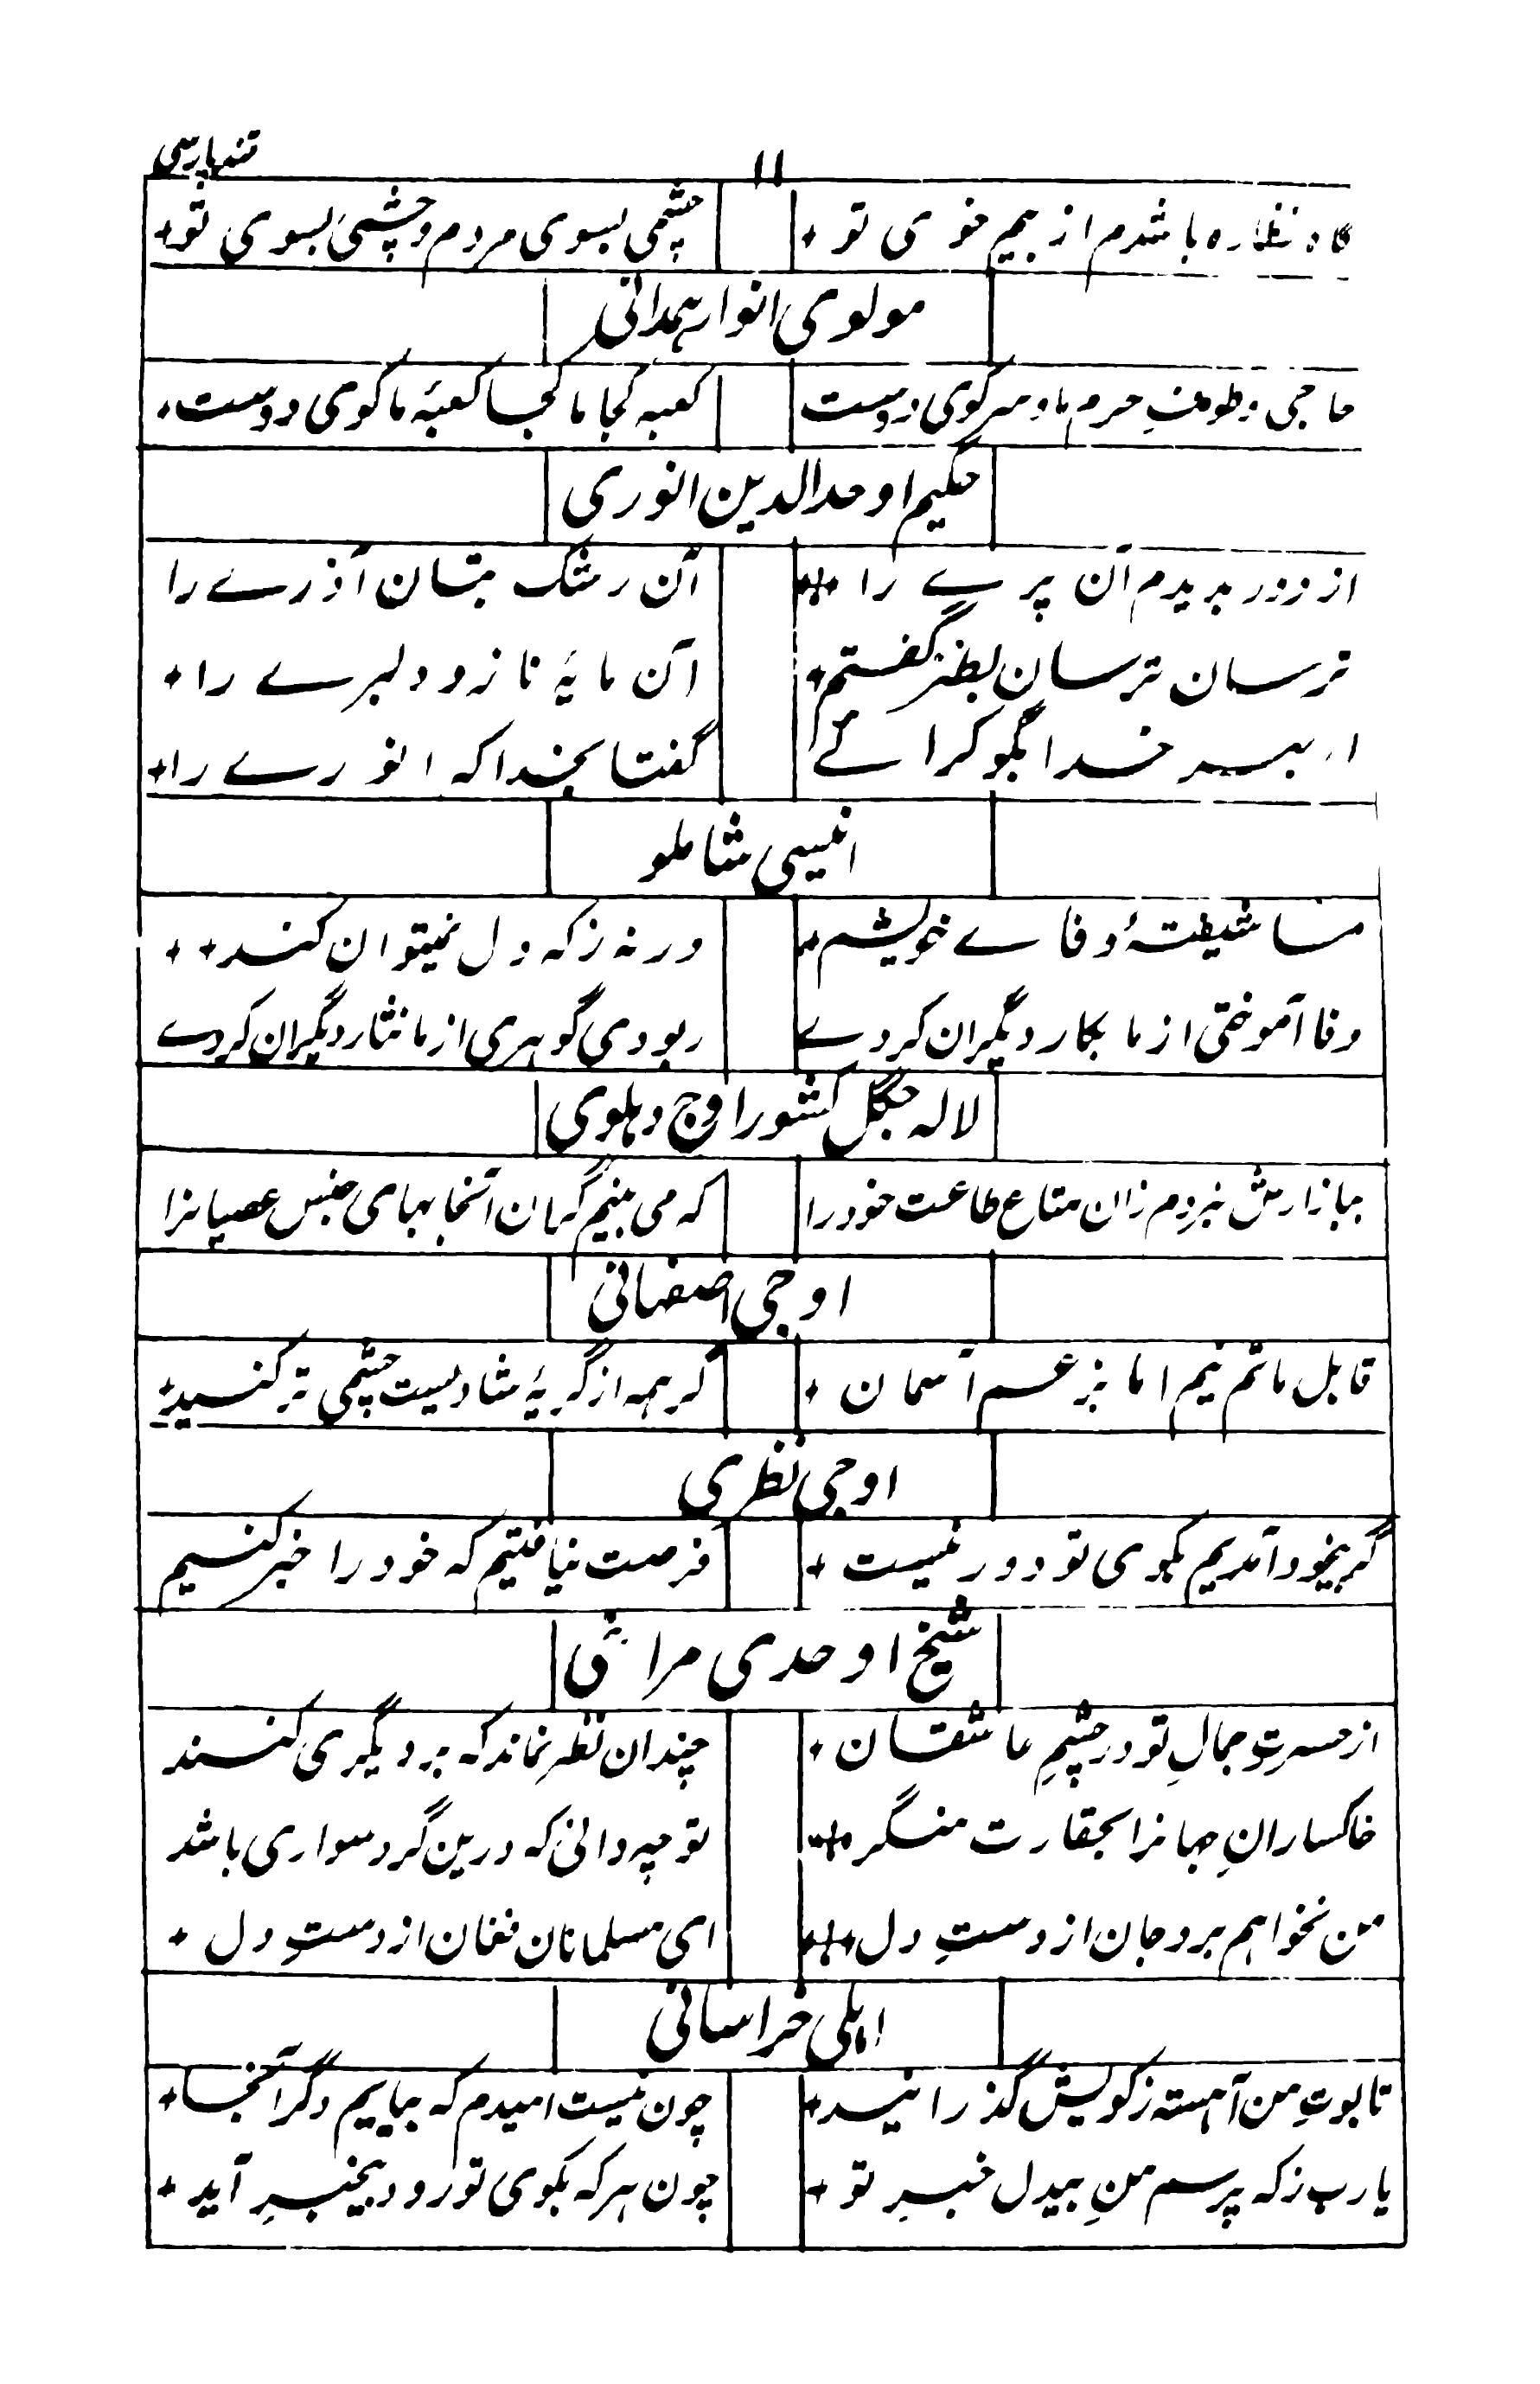 قند پارسی
۱۱
گاه نظاره باشدم از بیم خوی تو + چشمی بسوی مردم و چشمی بسوی تو +
مولوی انوار ہمدانی
حاجی و طوفِ حرم ما و سر کوی دوست کعبه کجا ما کجا کعبۂ ما کوی دوست +
حکیم اوحدالدین انوری
از دور بدیدم آن پرے را آن رشک بتان آذرے را
ترسان ترسان بطنز گفتم + آن مایۂ ناز و دلبرے را +
از بہر خدا بگو کرائے گفتا بخدا که انورے را +
انیسی شاملو
منشا شیفتۂ وفاے خویشم + ورنه ز که دل نمیتوان کند + +
وفا آموختی از ما بکار دیگران کردے ربودی گوہری از ما نثار دیگران کردے
لاله جگل کشور اوج دہلوی
ببازارش نبردم زان متاع طاعت خود را که می بینم گران انتخابہای جنس عصیانرا
اوجی اصفہانی
قابل ماتم نیم اما بزعم آسمان + گر ہمه از گریۂ شادیست چشمی تر کنید +
اوجی نظری
گر بیخود آمدیم بکوی تو دور نیست + فرصت نیافتیم که خود را خبر کنیم
شیخ اوحدی مراغی
از حسرتِ جمالِ تو در چشمِ عاشقان + چندان نظر نماند که بر دیگری کنند
خاکسارانِ جہانرا بحقارت منگر تو چه دانی که درین گرد سواری باشد
من نخواہم برد جان از دستِ دل ای مسلمانان فغان از دستِ دل +
اہلی خراسانی
تابوتِ من آہسته ز کویش گذرانید + چون نیست امیدم که بیایم دگر آنجا +
یارب ز که پرسم منِ بیدل خبرِ تو + چون ہر که بکوی تو رود بیخبر آید +